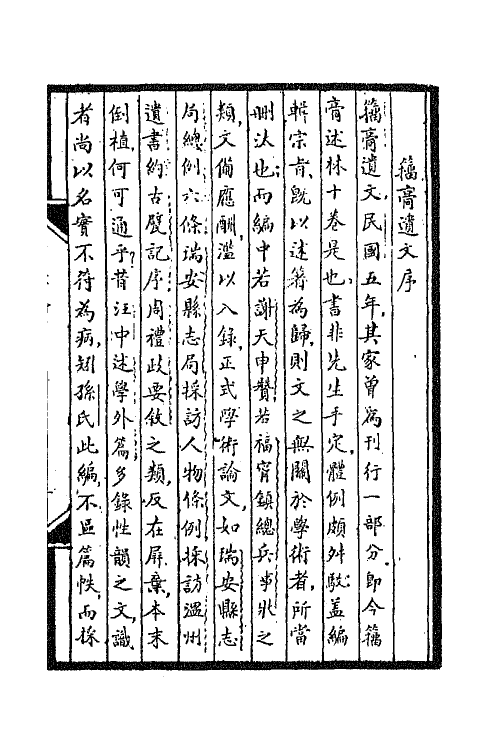 籀膏遺文序
籀膏遺文，民國五年，其家曾為刊行一部分，即今籀
膏述林十卷是也，書非先生手定，體例頗舛駮，蓋編
輯宗旨，既以述籀為歸，則文之無關於學術者，所當
刪汰也，而編中若謝天申贊，若福甯鎮總兵事狀之
類，文備應酬，濫以入錄，正式學術論文，如瑞安縣志
局總例六條，瑞安縣志局採訪人物條例，採訪溫州
遺書約，古甓記序，周禮政要敘之類，反在屏棄，本末
倒植，何可通乎？昔汪中述學外篇，多錄性韻之文，識
者尚以名實不符為病，矧孫氏此編，不區篇帙，而採